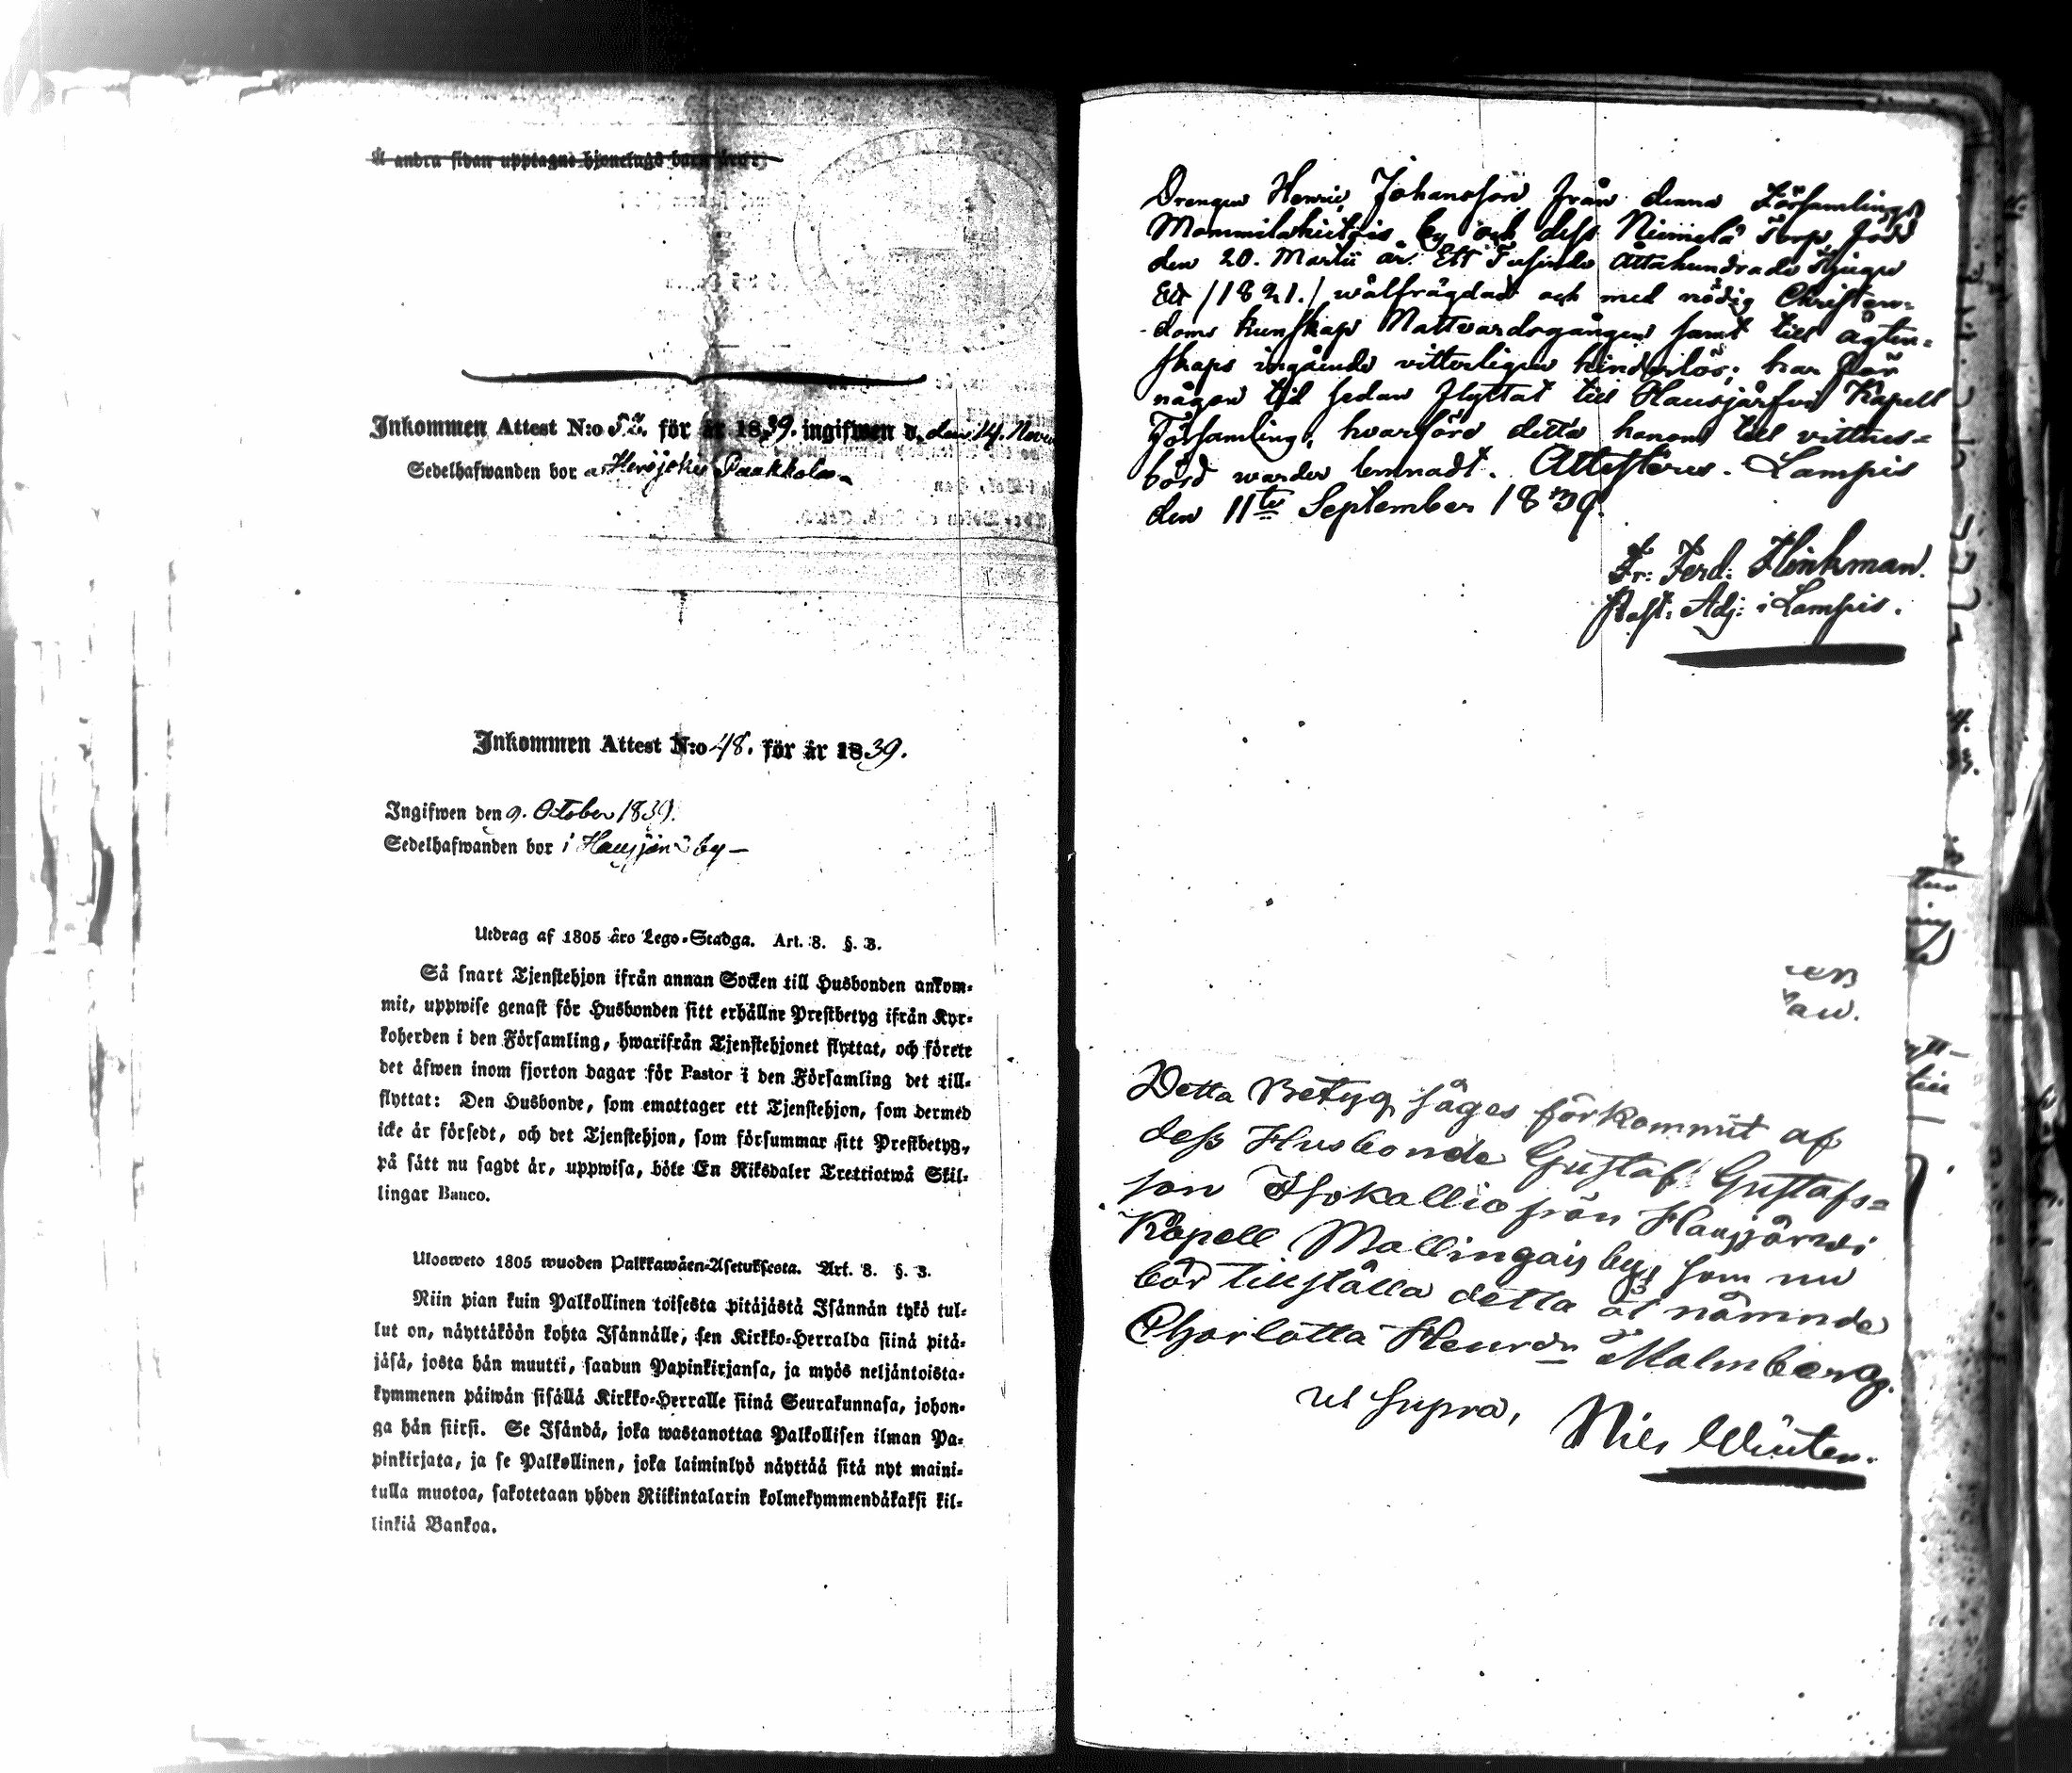 Å andra sidan upptagne hjonelags barn äro:
Inkommen Attest N:o 52. för år 1839. ingifwen d. den 14. Nove
Sedelhafwanden bor a Herajoki Paakkola
Inkommen Attest N:o 48. för år 1839.
Ingifwen den 9. October 1839.
Sedelhafwanden bor i by —
Utdrag af 1805 åro Lego-Stadga. Art. 8. §. 3.
Så snart Tjenstehjon ifrån annan Socken till Husbonden ankom-
mit, uppwise genast för Husbonden sitt erhållne Prestbetyg ifrån Kyr-
koherden i den Församling, hwarifrån Tjenstehjonet flyttat, och förete
det äfwen inom fjorton dagar för Pastor i den Församling det till-
flyttat: Den Husbonde, som emottager ett Tjenstehjon, som dermed
icke är försedt, och det Tjenstehjon, som försummar sitt Prestbetyg,
på sätt nu sagdt är, uppwisa, böte En Riksdaler Trettiotwå Skil-
lingar Banco.
Ulosweto 1805 wuoden Palkkawäen-Asetuksesta. Art. 8. §. 3.
Niin pian kuin Palkollinen toisesta pitäjästä Isännän tykö tul-
lut on, näyttäköön kohta Isännälle, sen Kirkko-Herralda siinä pitä-
jäsä, josta hän muutti, saadun Papinkirjansa, ja myös neljäntoista-
kymmenen päiwän sisällä Kirkko-Herralle siinä Seurakunnasa, johon-
ga hän siirsi. Se Isändä, joka wastanottaa Palkollisen ilman Pa-
pinkirjata, ja se Palkollinen, joka laiminlyö näyttää sitä nyt maini-
tulla muotoa, sakotetaan yhden Riikintalarin kolmekymmendäkaksi kil-
linkiä Bankoa.
Drengen Henric Johansson från denna Församlings
Mommilahietois by och dess Niemelä Torp, född
den 20. Martii år Ett Tusende Åttahundrade Tjugu
Ett /1821./ wälfrägdad och med nödig Christen-
doms kunskap Nattvardsgången samt till ägten-
skaps ingående vitterligen hinderlös; har för
någon tid sedan flyttat till Hausjärfvi Kapell
Församling, hvarföre detta honom till vittnes-
börd warder lemnadt. Attesteres. Lampis
den 11te September 1839.
Fr: Ferd: Hinkman.
Past: Adj: i Lampis.
Detta Betyg säges förkommit af
dess Husbonde Gustaf Gustafs-
son Isokallio från Hausjärwi
Kapell Mallingais by, som nu
bör tillställa detta åt nämnde
Charlotta Henrdr Malmberg.
ut supra,
Nils Winter.